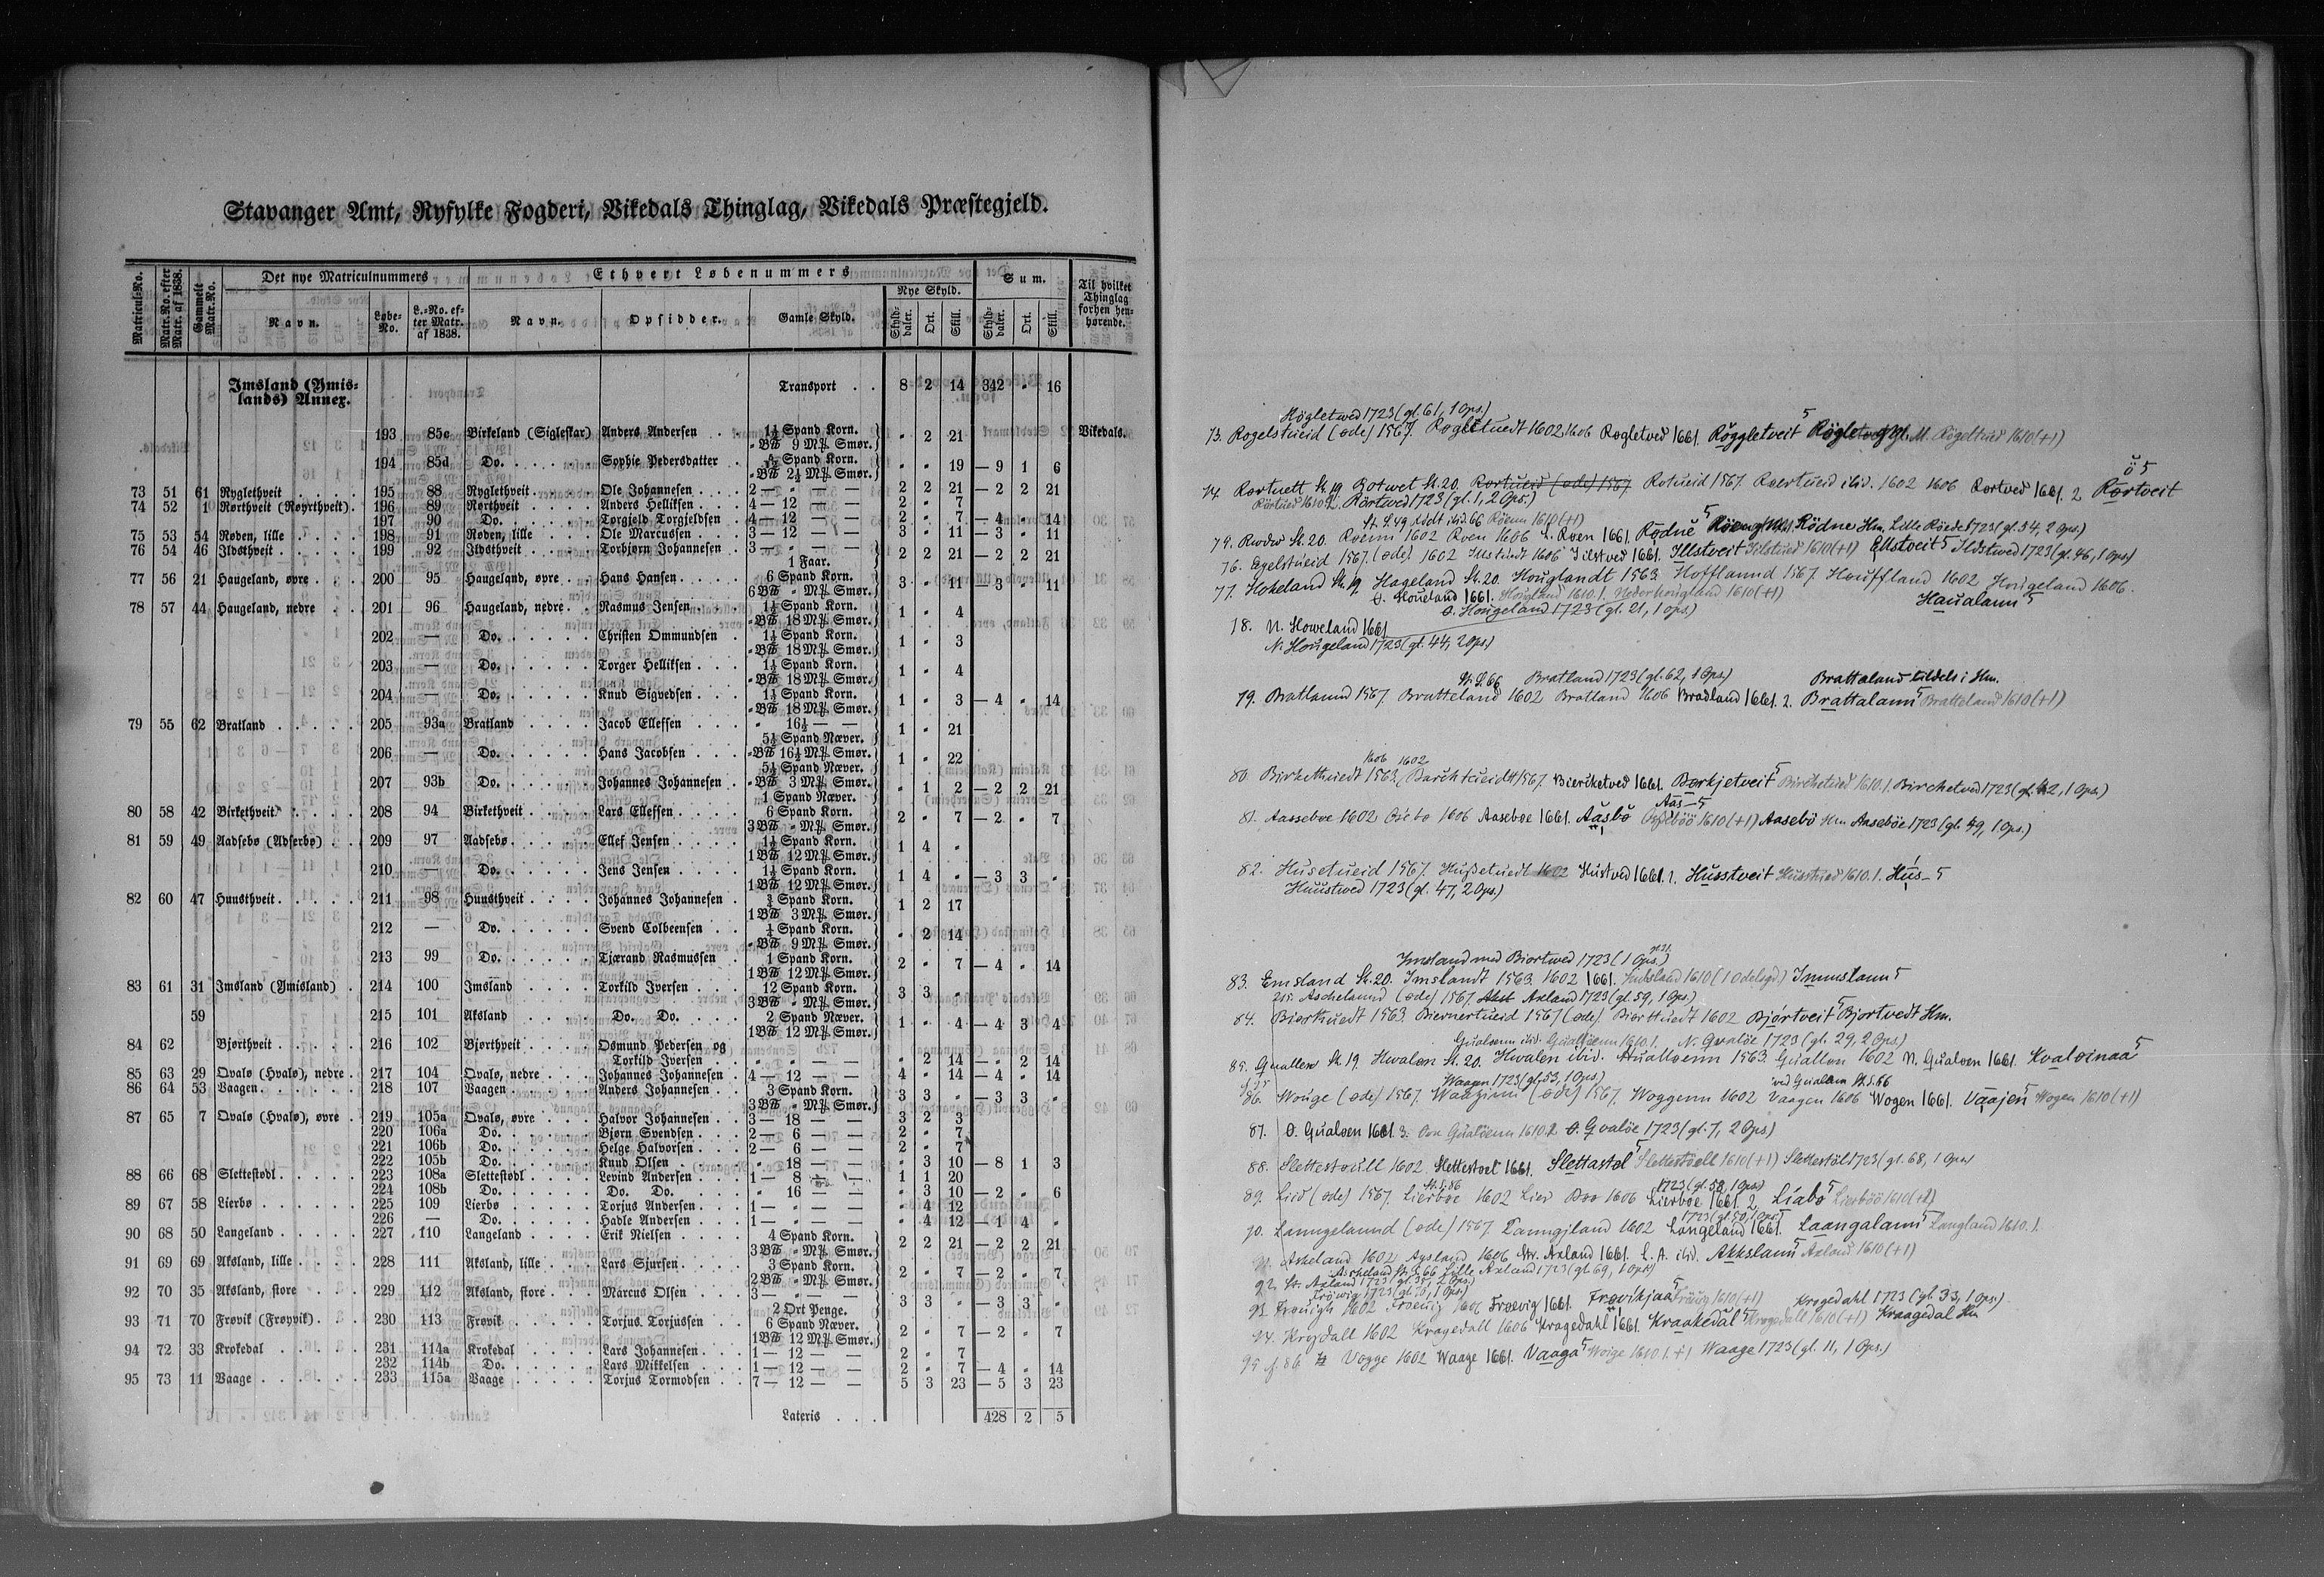 Stavanger Amt, Ryfylke Fogderi, Vikedals Thinglag, Vikedals Præstegjeld.
Matricul-No. Matr.No. efter Matr. af 1838. Gammelt Matr.-No. Det nye Matriculnummers Ethvert Løbenummers Sum. Til hvilket Thinglag forhen henhørende.
Navn. Løbe-No. L.-No. efter Matr. af 1838. Navn. Opsidder. Gamle Skyld. Nye Skyld. Skylddaler. Ort. Skill. Skylddaler. Ort. Skill.
Imsland (Ymislands) Annex. Transport . . 8 2 14 342 " 16
193 85c Birkeland (Sigleskar) Anders Andersen . . 1½ Spand Korn. " BPd 9 Mk Smør. " 2 21 Vikedals.
194 85d Do. Sophie Pedersdatter . Spand Korn. " BPd 2½ Mk Smør. " " 19 — 9 1 6
73 51 61 Ryglethveit 195 88 Ryglethveit Ole Johannesen 2 — " — — 2 2 21 — 2 2 21
74 52 1 Rørthveit (Røyrthveit). 196 89 Rørthveit Anders Helliksen 4 — 12 — — 2 " 7
197 90 Do. Torgjeld Torgjeldsen . 4 — 12 — — 2 " 7 — 4 " 14
75 53 54 Røden, lille 198 91 Røden, lille Ole Marcussen 3 — 12 — — 3 " 11 — 3 " 11
76 54 46 Ildsthveit 199 92 Ildsthveit Torbjørn Johannesen . 3 — " — — 1 Faar. 2 2 21 — 2 2 21
77 56 21 Haugeland, øvre 200 95 Haugeland, øvre Hans Hansen 6 Spand Korn. 6 BPd " Mk Smør. 3 " 11 — 3 " 11
78 57 44 Haugeland, nedre 201 96 Haugeland, nedre Rasmus Jensen 1½ Spand Korn. " BPd 18 Mk Smør. 1 " 4
202 — Do. Christen Ommundsen 1½ Spand Korn. " BPd 18 Mk Smør. 1 " 3
203 — Do. Torger Helliksen 1½ Spand Korn. " BPd 18 Mk Smør. 1 " 4
204 — Do. Knud Sigvedsen 1½ Spand Korn. " BPd 18 Mk Smør. 1 " 3 — 4 " 14
79 55 62 Bratland 205 93a Bratland Jacob Ellefsen " 16½ — — 5½ Spand Næver. 1 " 21
206 — Do. Hans Jacobsen " BPd 16½ Mk Smør. 5½ Spand Næver. 1 " 22
207 93b Do. Johannes Johannesen . " BPd 3 Mk Smør. 1 Spand Næver. " 1 2 — 2 2 21
80 58 42 Birkethveit 208 94 Birkethveit Lars Ellefsen 6 Spand Korn. 3 BPd " Mk Smør. 2 " 7 — 2 " 7
81 59 49 Aadsebø (Adserbø) 209 97 Aadsebø Ellef Jensen 1½ Spand Korn. 1 BPd 12 Mk Smør. 1 4 "
210 — Do. Jens Jensen 1½ Spand Korn. 1 BPd 12 Mk Smør. 1 4 " — 3 3 "
82 60 47 Hunsthveit 211 98 Hunsthveit Johannes Johannesen . Spand Korn. 1 BPd 3 Mk Smør. 1 2 17
212 — Do. Svend Colbeensen Spand Korn. " BPd 9 Mk Smør. " 2 14
213 99 Do. Tjærand Rasmussen 1 Spand Korn. 1 BPd 12 Mk Smør. 2 " 7 — 4 " 14
83 61 31 Imsland (Ymisland) 214 100 Imsland Torkild Iversen 12 Spand Korn. 3 BPd " Mk Smør. 3 3 "
59 215 101 Aksland Do. Do. 2 Spand Næver. 1 BPd 12 Mk Smør. 1 " 4 — 4 3 4
84 62 Bjorthveit 216 102 Bjorthveit Osmund Pedersen og Torkild Iversen " " — — " 2 14 — " 2 14
85 63 29 Qvalø (Hvalø), nedre . 217 104 Qvalø, nedre Johannes Johannesen . 4 — 12 — — 4 " 14 — 4 " 14
86 64 53 Vaagen 218 107 Vaagen Anders Johannesen 3 Spand Korn. 3 BPd " Mk Smør. 3 3 " — 3 3 "
87 65 7 Qvalø (Hvalø), øvre . 219 105a Qvalø, øvre Halvor Johannesen 3 — 18 — — 3 2 3
220 106a Do. Bjørn Svendsen 2 — 6 — — 2 " 7
221 106b Do. Helge Halvorsen 2 — 6 — — 2 " 7
222 105b Do. Knud Olsen " 18 — — " 3 10 — 8 1 3
88 66 68 Slettestøl 223 108a Slettestøl Levind Andersen 1 — 8 — — 1 1 20
224 108b Do. Do. Do. " 16 — — " 3 10 — 2 " 6
89 67 58 Lierbø 225 109 Lierbø Torjus Andersen 1 — " — — " 4 12
226 — Do. Hadle Andersen 1 — " — — " 4 12 — 1 4 "
90 68 50 Langeland 227 110 Langeland Erik Nielsen 4 Spand Korn. 3 BPd " Mk Smør. 2 2 21 — 2 2 21
91 69 69 Aksland, lille 228 111 Aksland, lille Lars Sjursen 3 Spand Korn. 2 BPd " Mk Smør. 2 " 7 — 2 " 7
92 70 35 Aksland, store 229 112 Aksland, store Marcus Olsen 3 — " — — 2 Ort Penge. 3 3 " — 3 3 "
93 71 70 Frøvik (Frøyvik) 230 113 Frøvik Torjus Torjussen 6 Spand Næver. 1 BPd 12 Mk Smør. 2 " 7 — 2 " 7
94 72 33 Krokedal 231 114a Krokedal Lars Johannesen 1 — 12 — — 2 " 7
232 114b Do. Lars Mikkelsen 1 — 12 — — 2 " 7 — 4 " 14
95 73 11 Vaage 233 115a Vaage Torjus Tormodsen 7 — 12 — — 5 3 23 — 5 3 23
Lateris . . . 428 2 5
Högletwed 1723 (gl. 61, 1 Ops.)
73. Rogelstueid (øde) 1567. Rogletuedt 1602 1606 Rogletved 1661. Røggletveit 5 M. Rögeltued 1610 (+1)
74. Rortuett St. 19. Botwet St. 20. Rortueid (øde) 1567. Rotueid 1567. Roertueid ibid. 1602 1606 Rortved 1661. 2 Rørtveit ö 5
Rörtued 1610.2. Rörtwed 1723 (gl. 1, 2 Ops.)
St. S. 49 ibid. 66 Röenn 1610 (+1)
St. 20. Roenn 1602 Roen 1606 L. Roen 1661. Rødne 5 Rödne Hm. Lille Röede 1723 (gl. 54, 2 Ops.)
76. Egelstueid 1567. (øde) 1602 Illstuedt 1606 Jilstved 1661. Illstveit Jilstued 1610 (+1) Ellstveit 5 Ildstwed 1723 (gl. 46, 1 Ops)
77. Hokeland St. 19. Hageland St. 20. Houglandt 1563 Hofflannd 1567. Houffland 1602 Hougeland 1606.
O. Houeland 1661. Hougland 1610.1. Nederhougland 1610 (+1) Haualann 5
O. Hougeland 1723 (gl. 21, 1 Ops.)
78. N. Howeland 1661
N. Hougeland 1723 (gl. 44, 2 Ops.)
St. S. 66 Bratland 1723 (gl. 62, 1 Ops) Brattaland tildels i Hm.
79. Bratlannd 1567. Brutteland 1602 Bratland 1606 Bradland 1661. 2. Brattalann 5 Bratteland 1610 (+1)
1606 1602
80. Birkethuedt 1563. Barchtueidt 1567. Bierchetved 1661. Børkjetveit 5 Birchetued 1610.1. Birchetved 1723 (gl. 42, 1 Ops.)
Aas- 5
81. Aasseboe 1602 1606 Aaseboe 1661. Aasbø 1610 (+1) Aasebö Hm Aasebøe 1723 (gl. 49, 1 Ops.)
82. Husetueid 1567. Hussetuedt 1602 Hustved 1661. 1. Husstveit Husstued 1610.1. Hús- 5
Huustwed 1723 (gl. 47, 2 Ops.)
Imsland med Biortwed 1723 (1 Ops.)
83. Emsland St. 20. Imslandt 1563. 1602 1661. 1610 (1 ødelagd.) Immslann 5
Aschelannd (øde) 1567. Axland 1723 (gl. 59, 1 Ops.)
84. Biertuedt 1563. Biernertueid 1567 (øde) Biorttuedt 1602 Bjørtveit 5 Bjortvedt Hm.
Gualoenn ibid. 1610.1. N. Qvaløe 1723 (gl. 29, 2 Ops.)
85. Quallen St. 19. Hwalen St. 20. Hwalen ibid. 1563 Guallon 1602 N. Gualoen 1661. Kvaloinaa 5
Waagen 1723 (gl. 53, 1 Ops.) ved Gualom St. S. 66
86. Wouge (øde) 1567. (øde) 1567. Woggenn 1602 Vaagen 1606 Wogen 1661. Vaajen 5 Wogen 1610 (+1)
87. O. Gualoen 1661. 3. Gualöenn 1610.2 O. Qvaløe 1723 (gl. 7, 2 Ops)
88. Slettestoull 1602. Slettestoel 1661. Slettastøl 5 Slettestoell 1610 (+1) Slettestöl 1723 (gl. 68, 1 Ops)
St. S. 86 1723 (gl. 58, 1 Ops)
89. Lied (øde) 1567. Lierboe 1602 Lier Boe 1606 Lierboe 1661. 2. Liabø 5 Lierböö 1610 (+2)
1723 (gl. 50, 1 Ops)
90. Lanngelannd (øde) 1567. Lanngiland 1602 Langeland 1661. Laangalann 5 Langland 1610.1.
91. Askeland 1602 Aysland 1606 Axland 1661. L. A. ibid. Akkslann 5 Axland 1610 (+1)
Ascheland St. S. 66 Lille Axland 1723 (gl. 69, 1 Ops)
92. St. Axland 1723 (gl. 35, 2 Ops.)
Fröwig 1723 (gl. 70, 1 Ops)
93. 1602 1606 Froewig 1661. Frøvikjaa 5 Fröuig 1610 (+1) Krogedahl 1723 (gl. 33, 1 Ops.)
94. Krogdall 1602 Kragedall 1606 Kragedahl 1661. Kraakedal 5 Krogedall 1610 (+1) Kraagedal Hm
95 f. 86 Vogge 1602 Waage 1661. Vaaga 5 Woige 1610 1. +1 Waage 1723 (gl. 11, 1 Ops.)